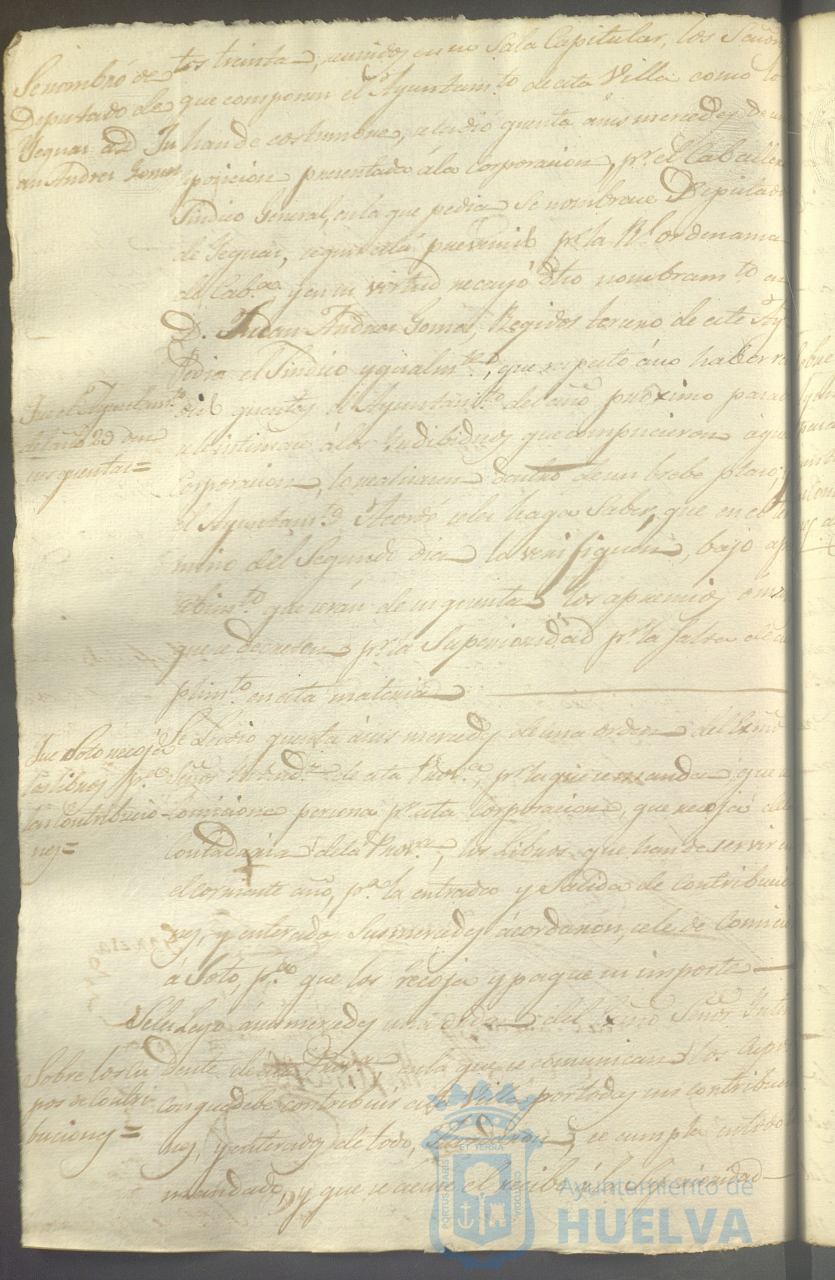 Se nombró de
Deputado de
Yeguas a D. Ju
an Andres Gomez
tos treinta, reunidos en su Sala Capitular, los Señor
que componen el Ayuntam.to de esta Villa como lo
han de costumbre, se le dió quenta á sus mercedes de un
posicion presentada á la Corporacion, p.r el Caballero
Sindico General, en la que pedia se nombrase Diputado
de Yeguas, segun está prevenido p.r la R.l ordenansa
de Cab.as y en su virtud recayó dho nombram.to en
D. Juan Andres Gomez, Regidor terceno de este Ay
Que el Ayuntam.to
del año 29 den
sus quentas=
Pedia el Sindico ygualm.te, que respecto á no haber ren
dido quentas el Ayuntam.to del año proximo pasado
se les intimase á los Yndibiduos que compusieron aque
Corporacion, lo realizasen dentro de un brebe plazo, y
el Ayuntam.to Acordó se les haga Saber, que en el ter
mino del Segundo dia lo verifiquen, bajo aper
cibim.to que serán de su quenta los apremios
que se decreten p.r la Superioridad p.r la falta de cum
plim.to en esta materia
Que Soto recoja
los libros p.a
las Contribucio
nes=
Se le dió quenta á sus mercedes de una orden del Exmo
Señor Yntend.te de esta Prov.a, p.r la que se manda que se
comicione persona p.r esta Corporacion, que recoja de la
Contaduria de la Prov.a, los Libros que han de servir en
el corriente año, p.a la entrada y Salida de Contribucio
nes, y enterados Sus mercedes acordaron, se le dé Comicion
á Soto, p.a que los recoja y pague su importe
Sobre los Cu
pos de Contri
buciones=
Se les Leyó á sus mercedes una orden del Exmo Señor Inten
dente de esta Prov.a, en la que se comunican los Cupos
con que debe contribuir esta Villa por todas sus contribucio
nes, y enterados de todo, Acordaron, se cumpla en todo lo
mandado, y que se acuse el recibo á la Superioridad
PORTUS MARIS
ET TERRA
CUSTODIA
Ayuntamiento de
HUELVA